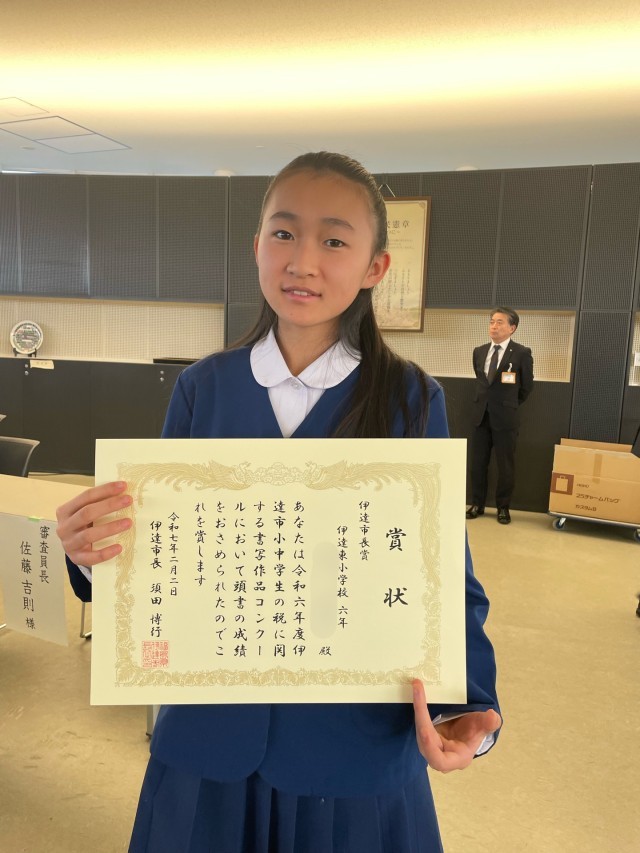 賞状
伊達市長賞
伊達東小学校 六年
殿
あなたは令和六年度伊
達市小中学生の税に関
する書写作品コンクー
ルにおいて頭書の成績
をおさめられたのでこ
れを賞します
令和七年二月二日
伊達市長 須田博行
審査員長
佐藤吉則 様
民憲章
25チャームバッグ